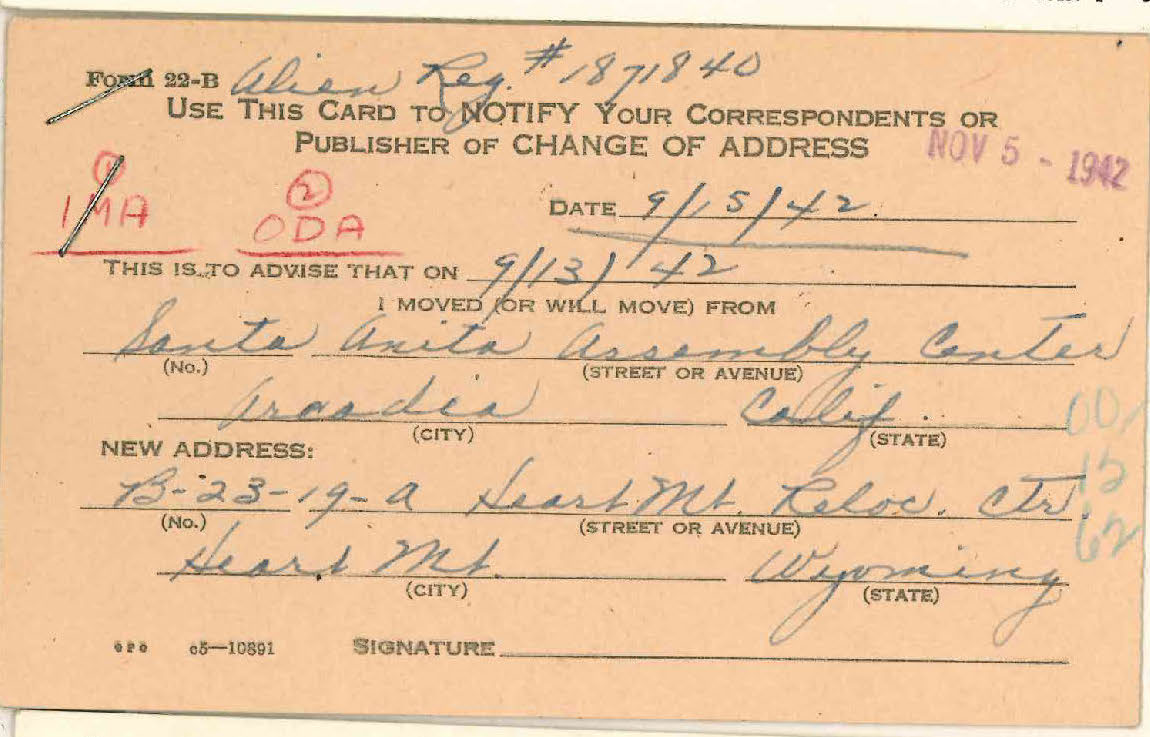 Form 22-B Alien Reg. # 1871840
USE THIS CARD TO NOTIFY YOUR CORRESPONDENTS OR
PUBLISHER OF CHANGE OF ADDRESS
NOV 5 - 1942
1 2
IMA ODA
DATE 9/15/42.
THIS IS TO ADVISE THAT ON 9/13/42
I MOVED (OR WILL MOVE) FROM
Santa Anita Assembly Center
(No.) (STREET OR AVENUE)
Arcadia Calif.
(CITY) (STATE)
NEW ADDRESS:
B-23-19-A Heart Mt. Reloc. Ctr.
(No.) (STREET OR AVENUE)
Heart Mt. Wyoming
(CITY) (STATE)
GPO c5—10891 SIGNATURE